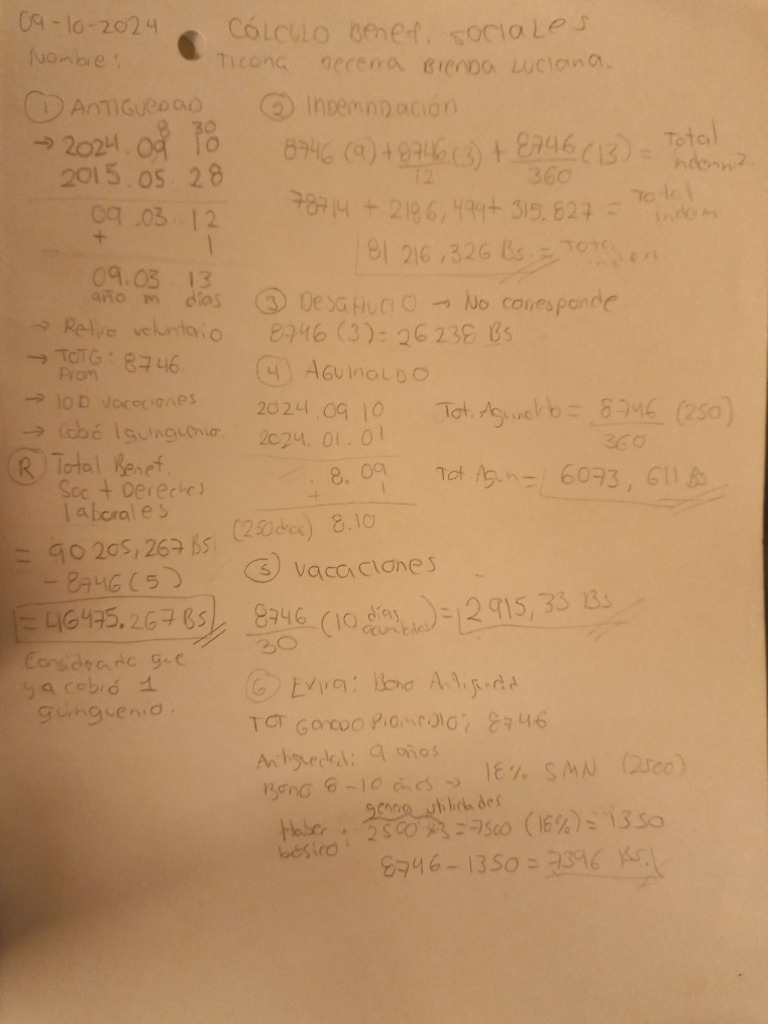 09-10-2024 Cálculo Benef. Sociales
Nombre: Ticona Becerra Brenda Luciana.
① Antiguedad
8 30
→ 2024.09 10
2015.05 28
09.03..12
+ 1
09.03 13
año m días
→ Retiro voluntario
→ TOTG: 8746.
Prom
→ 10D vacaciones
→ Cobó 1quinguenio.
Ⓡ Total Benef.
Soc + Derechos
laborales
= 90 205,267 Bs
- 8746 (5)
= 46475.267 Bs
Considerando que
ya cobró 1
quinguenio.
② Indemnización
8746 (9) + 8746/12 (3) + 8746/360 (13) = Total
78714 + 2186,499 + 315.827 = Total indem
81 216,326 Bs. = Total
③ Desahucio → No corresponde
8746 (3) = 26 238 Bs
④ Aguinaldo
2024.09.10
2024.01.01
. 8. 09
+ 1
(250 días) 8.10
Tot. Aguinaldo = 8746/360 (250)
Tot Aguin = 6073,611 Bs
⑤ Vacaciones
8746/30 (10 días acumulados) = 2 915,33 Bs
⑥ Extra: Bono Antiguedad
Tot Ganado Promedio: 8746
Antiguedad: 9 años
Bono 8-10 años → 18% SMN (2500)
genera utilidades
Haber básico: 2500 x3 = 7500 (18%) = 1350
8746 - 1350 = 7396 Bs.